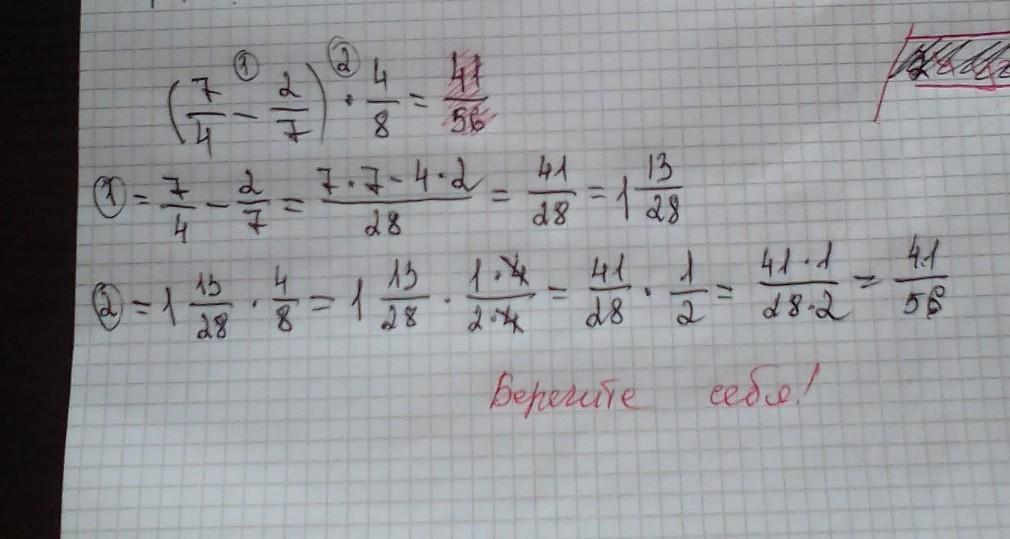 (7/4 - 2/7) · 4/8 = 41/56
① = 7/4 - 2/7 = (7·7 - 4·2)/28 = 41/28 = 1 13/28
② = 1 13/28 · 4/8 = 1 13/28 · (1·4)/(2·4) = 41/28 · 1/2 = (41·1)/(28·2) = 41/56
Берегите себя!